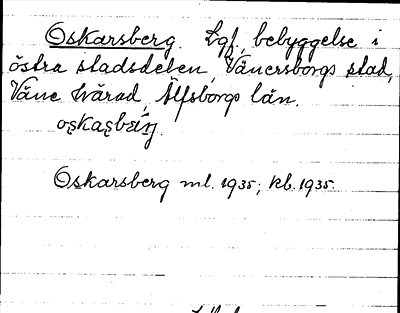 Oskarsberg Lgf, bebyggelse i
östra stadsdelen, Vänersborgs stad,
Väne härad, Älfsborgs län.
Oskarsberg ml. 1935; kb. 1935.